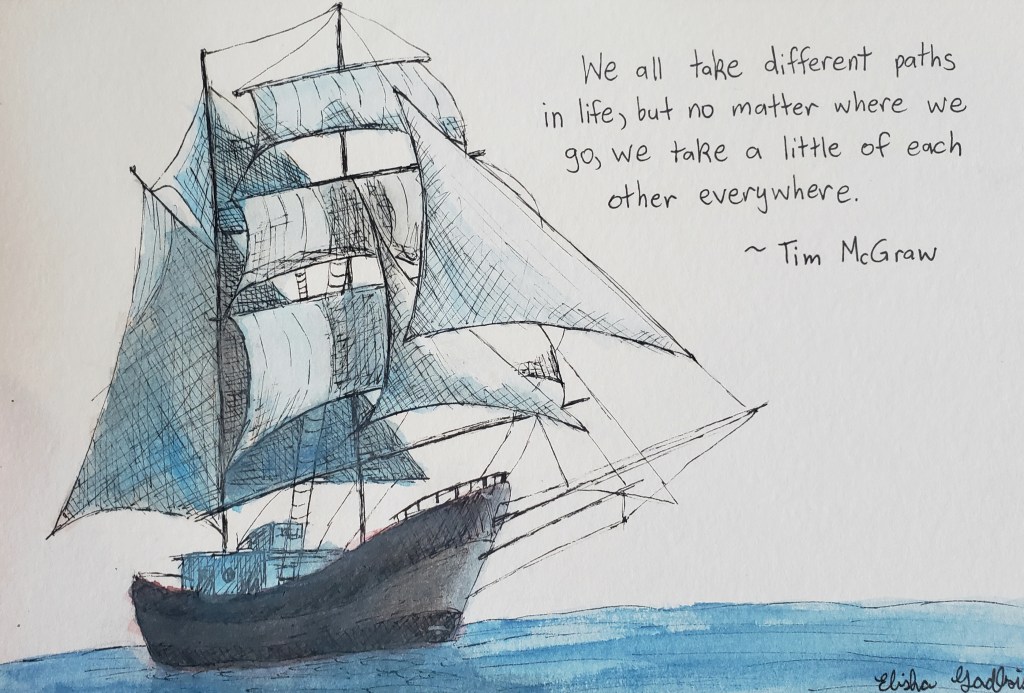 We all take different paths
in life, but no matter where we
go, we take a little of each
other everywhere.
~ Tim McGraw
Elisha